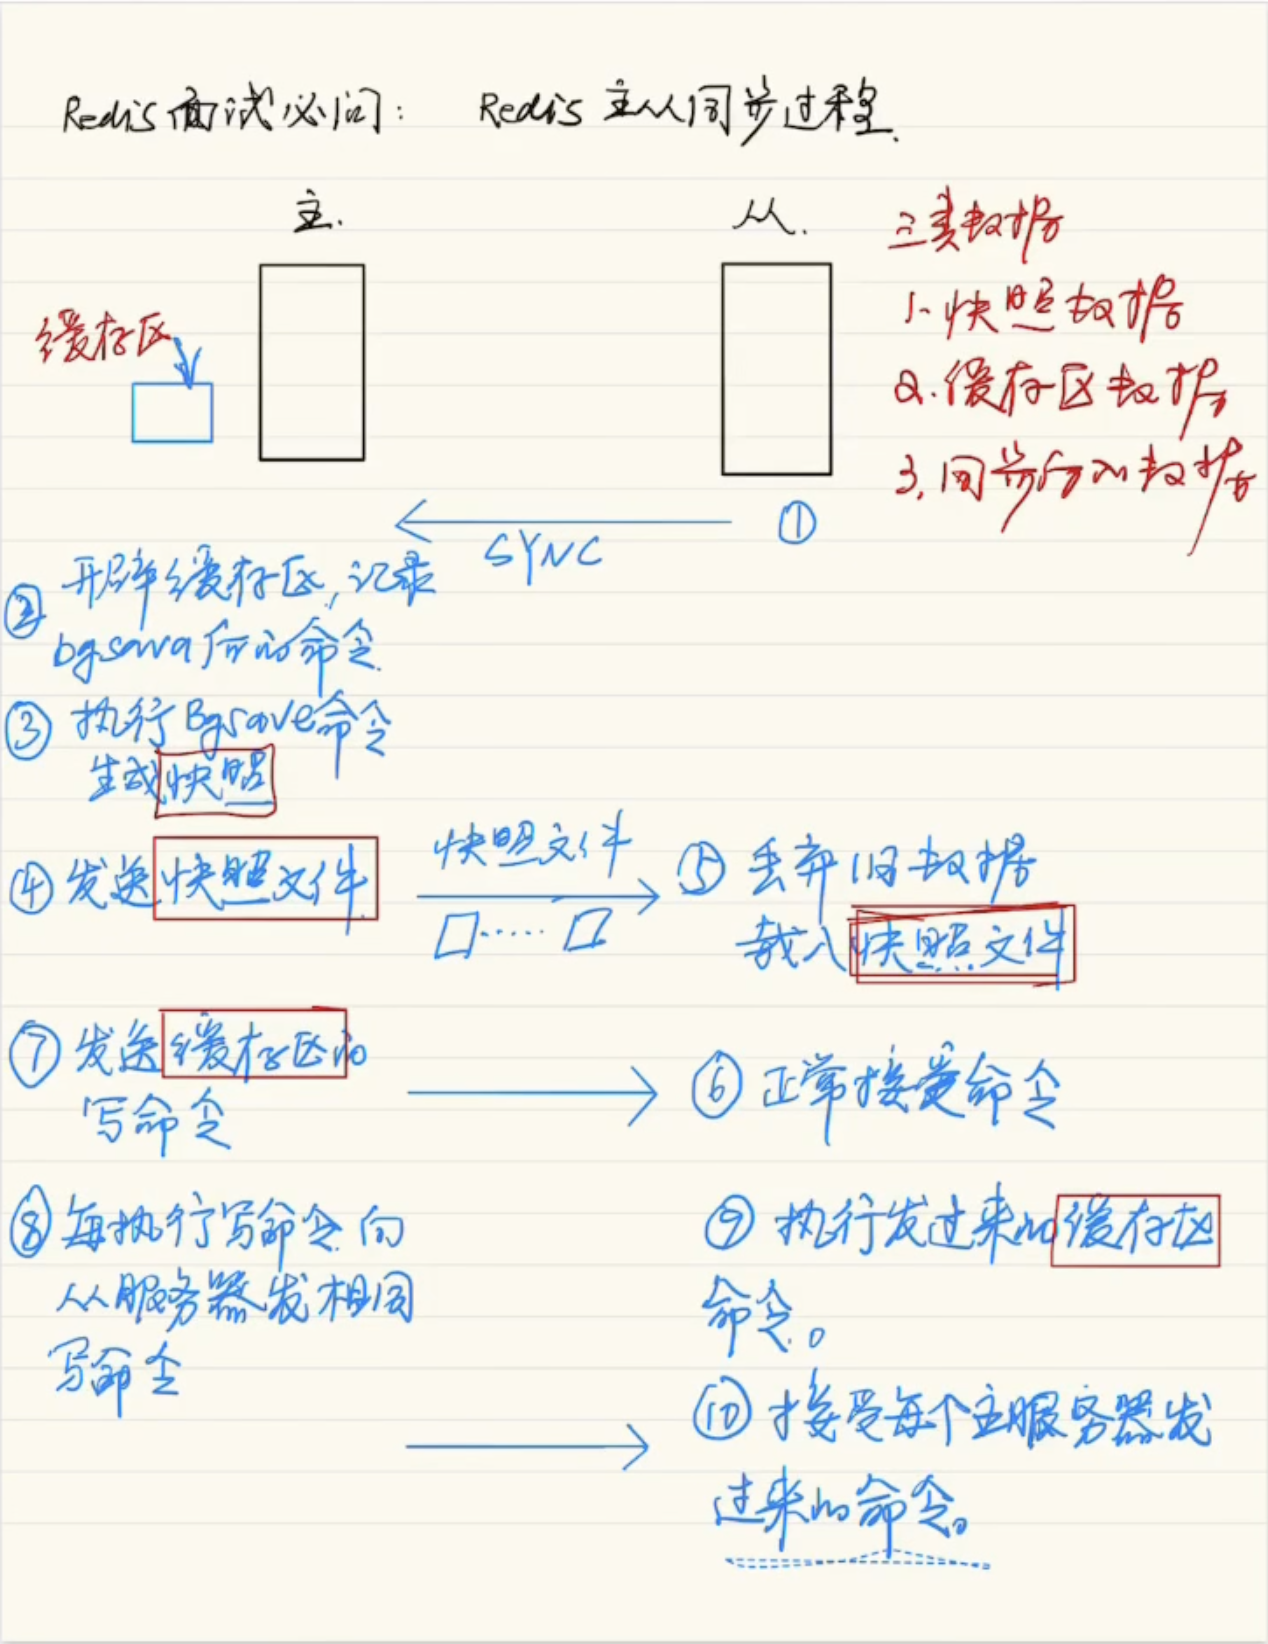 Redis面试必问： Redis 主从同步过程.
主.
从.
三类数据
1. 快照数据
2. 缓存区数据
3. 同步后的数据
缓存区
①
SYNC
② 开辟缓存区,记录
bgsava后的命令.
③ 执行Bgsave命令
生成快照
④ 发送快照文件
快照文件
⑤ 丢弃旧数据
载入快照文件
⑦ 发送缓存区的
写命令
⑥ 正常接受命令
⑧ 每执行写命令向
从服务器发相同
写命令
⑨ 执行发过来的缓存区
命令。
⑩ 接受每个主服务器发
过来的命令。